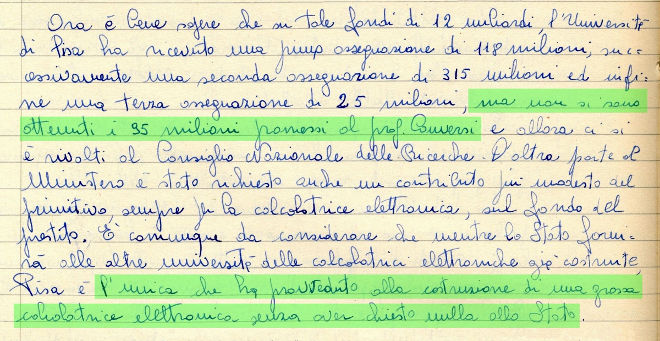 Ora è bene sapere che su tale fondi di 12 miliardi, l'Università
di Pisa ha ricevuto una prima assegnazione di 118 milioni, suc=
cessivamente una seconda assegnazione di 315 milioni ed infi=
ne una terza assegnazione di 25 milioni, ma non si sono
ottenuti i 95 milioni promessi al prof. Conversi e allora ci si
è rivolti al Consiglio Nazionale delle Ricerche. D'altra parte al
Ministero è stato richiesto anche un contributo più modesto del
primitivo, sempre per la calcolatrice elettronica, sul fondo del
prestito. È comunque da considerare che mentre lo Stato forni=
rà alle altre università delle calcolatrici elettroniche già costruite,
Pisa è l'unica che ha provveduto alla costruzione di una grossa
calcolatrice elettronica senza aver chiesto nulla allo Stato.